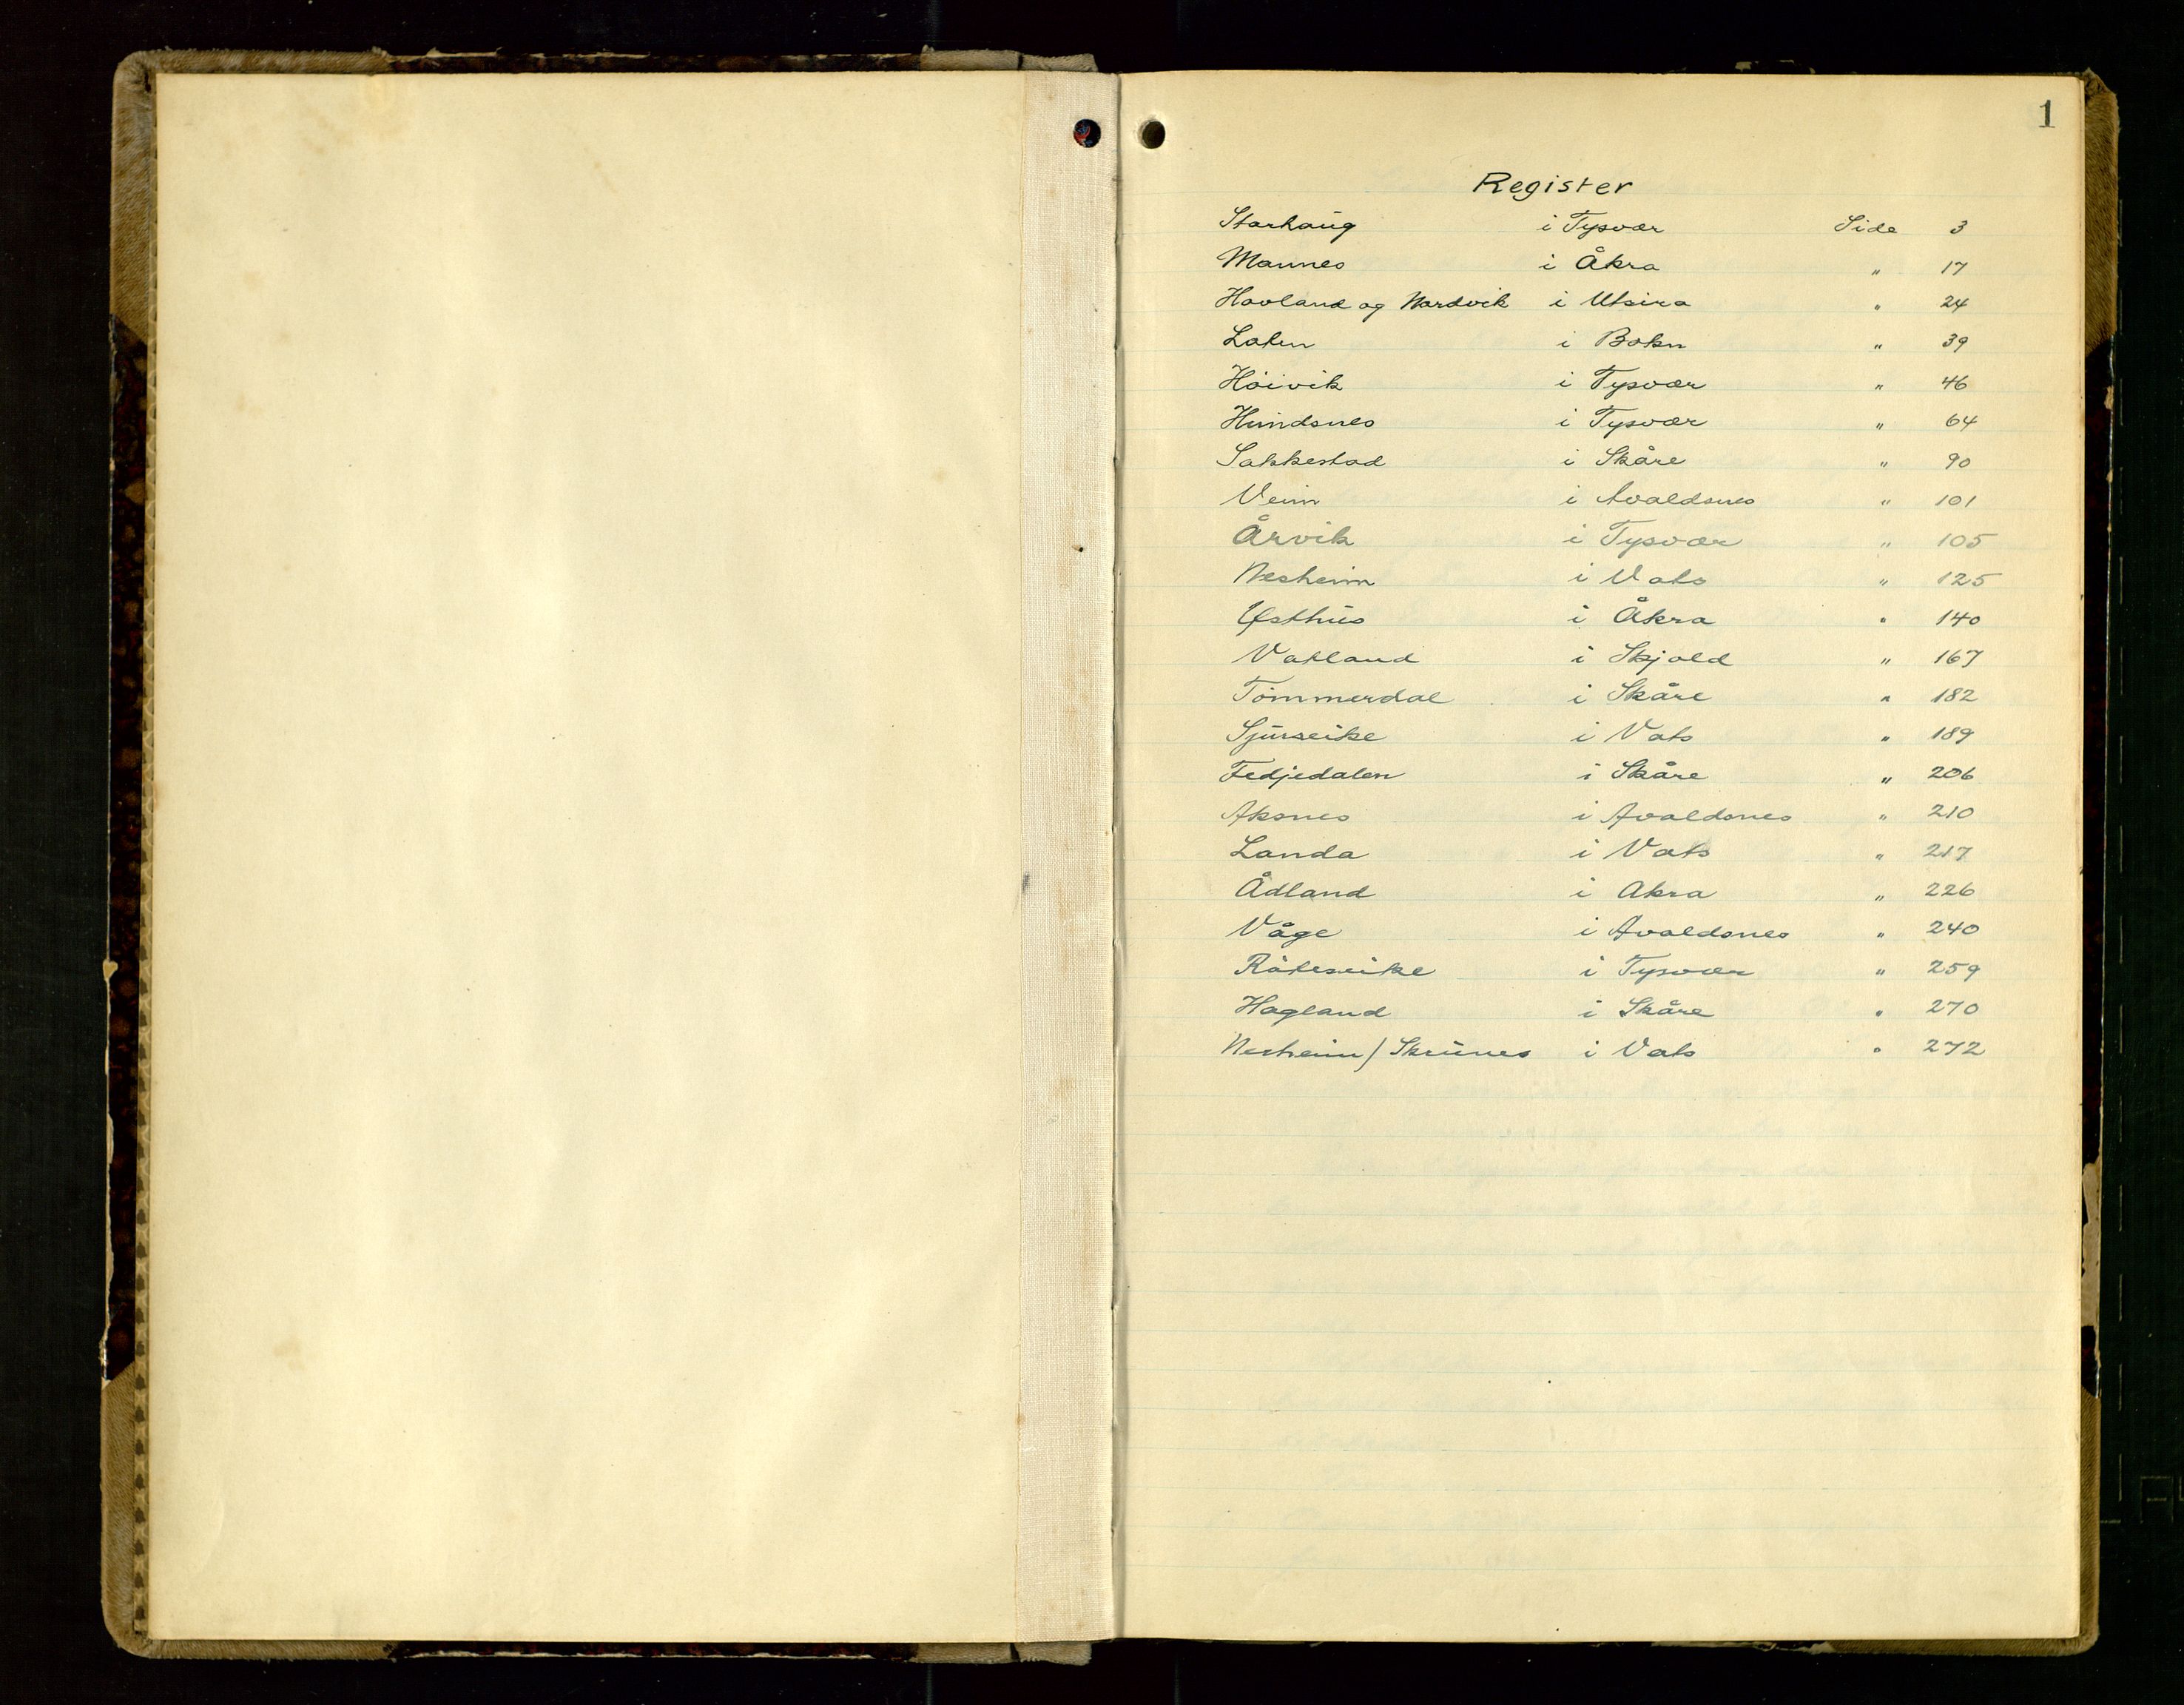 1
Register
Storhaug i Tysvær Side 3
Mannes i Åkra " 17
Hovland og Nordvik i Utsira " 24
Loten i Bokn " 39
Høivik i Tysvær " 46
Hundsnes i Tysvær " 64
Sakkestad i Skåre " 90
Veim i Avaldsnes " 101
Årvik i Tysvær " 105
Nesheim i Vats " 125
Østhus i Åkra " 140
Vatland i Skjold " 167
Tömmerdal i Skåre " 182
Sjurseike i Vats " 189
Fedjedalen i Skåre " 206
Aksnes i Avaldsnes " 210
Landa i Vats " 217
Ådland i Akra " 226
Våge i Avaldsnes " 240
i Tysvær " 259
Hagland i Skåre " 270
Nesheim / Skrunes i Vats " 272